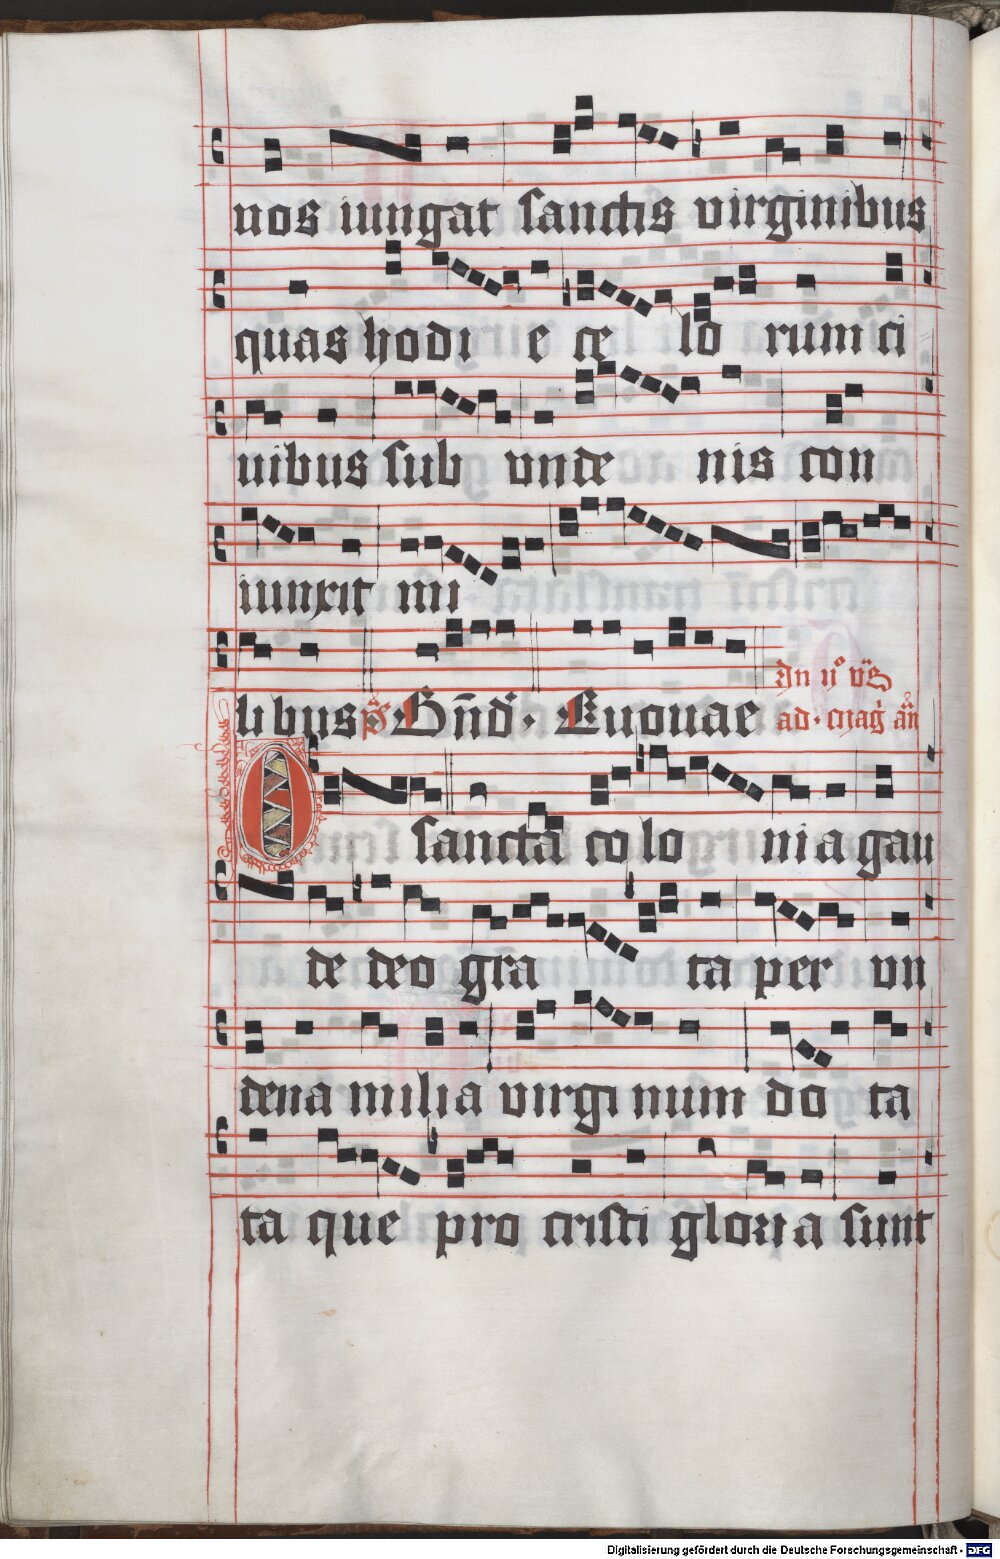 nos iungat sanctis virginibus
quas hodi e ce lo rum ci
uibus sub vnde nis con
iunxit mi
li bus p̄s Bn̄d. Euouae
Jn ijº vs̄
ad magͥ an̄
O sancta colo nia gau
de deo gra ta per vn
dena milia virgi num do ta
ta que pro cristi gloria sunt
Digitalisierung gefördert durch die Deutsche Forschungsgemeinschaft - DFG